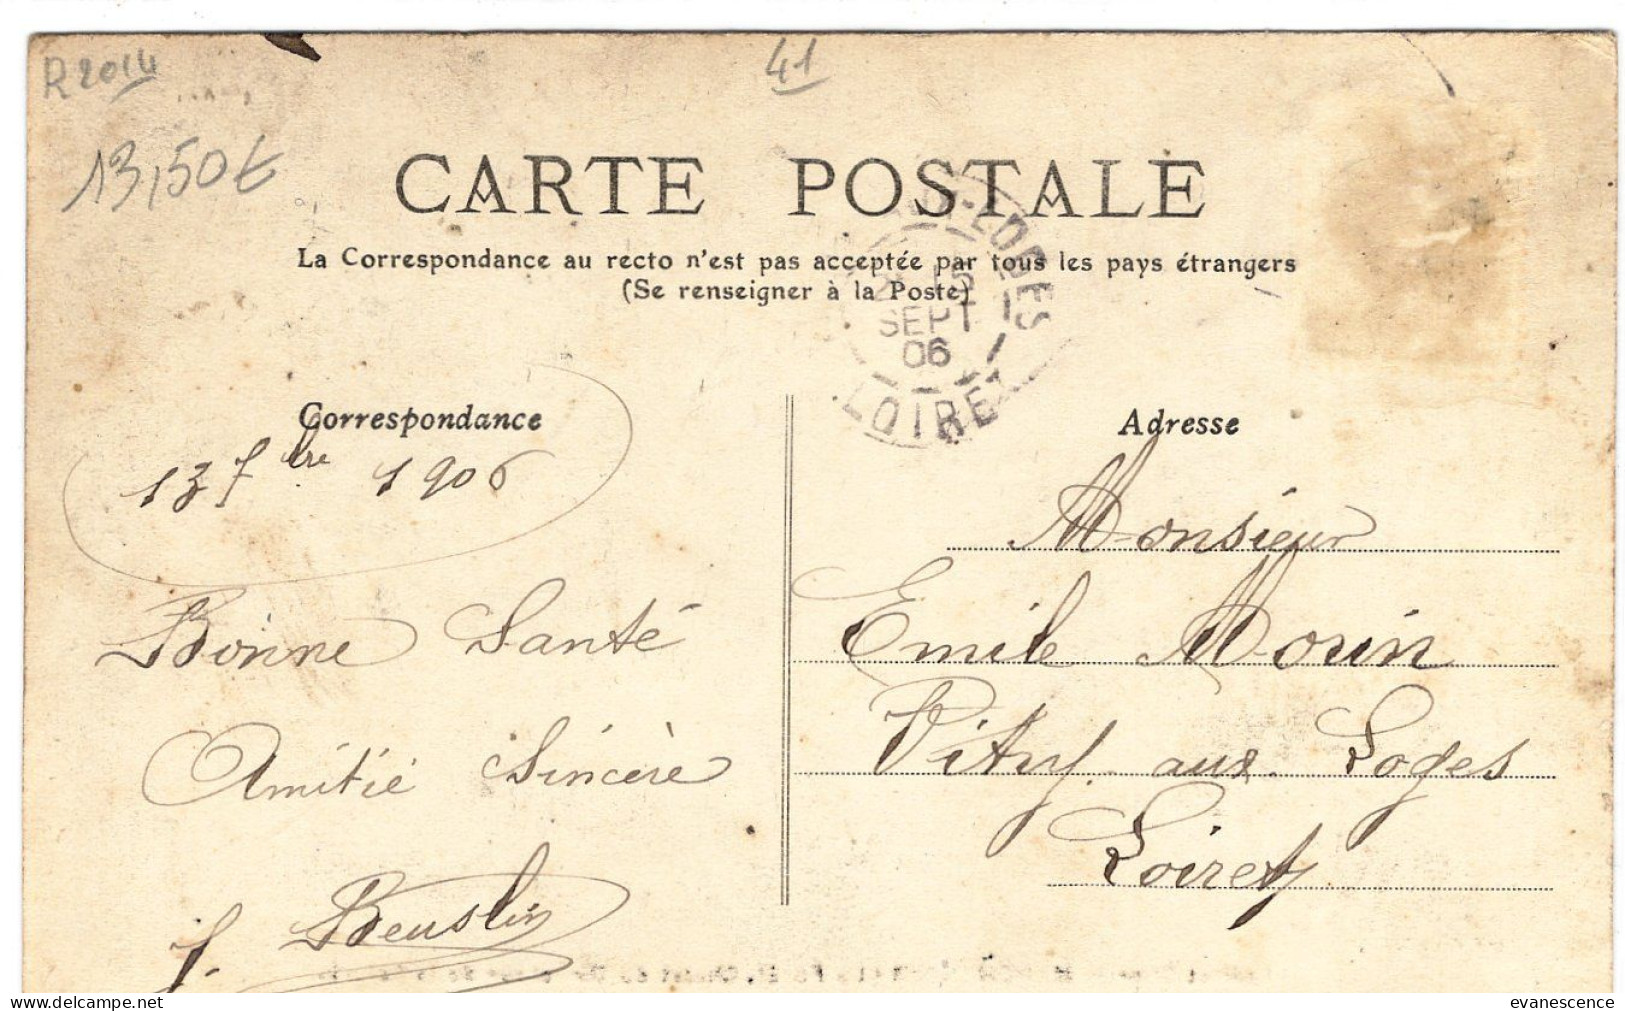 R2014
41
13,50€
CARTE POSTALE
La Correspondance au recto n'est pas acceptée par tous les pays étrangers
(Se renseigner à la Poste)
15
SEPT
06
LOIRET
Correspondance
13 7bre 1906
Bonne Santé
Amitié Sincère
J. Beuslin
Adresse
Monsieur
Emile Morin
Vitry aux Loges
Loiret
evanescence